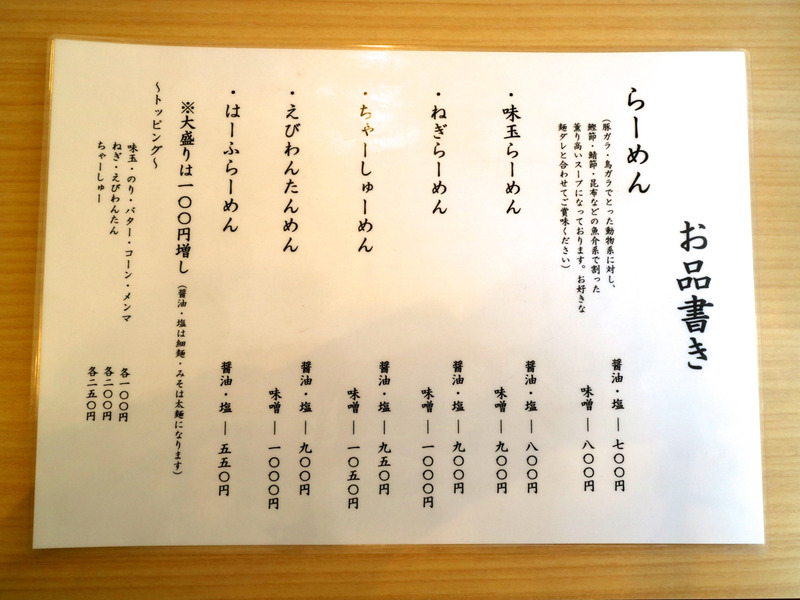 お品書き
らーめん
(豚ガラ・鳥ガラでとった動物系に対し、
鰹節・鯖節・昆布などの魚介系で割った
薫り高いスープになっております。お好きな
麺ダレと合わせてご賞味ください)
醤油・塩 ― 七〇〇円
味噌 ― 八〇〇円
・味玉らーめん
醤油・塩 ― 八〇〇円
味噌 ― 九〇〇円
・ねぎらーめん
醤油・塩 ― 九〇〇円
味噌 ― 一〇〇〇円
・ちゃーしゅーめん
醤油・塩 ― 九五〇円
味噌 ― 一〇五〇円
・えびわんたんめん
醤油・塩 ― 九〇〇円
味噌 ― 一〇〇〇円
・はーふらーめん
醤油・塩 ― 五五〇円
※大盛りは一〇〇円増し(醤油・塩は細麺・みそは太麺になります)
~トッピング~
味玉・のり・バター・コーン・メンマ 各一〇〇円
ねぎ・えびわんたん 各二〇〇円
ちゃーしゅー 各二五〇円